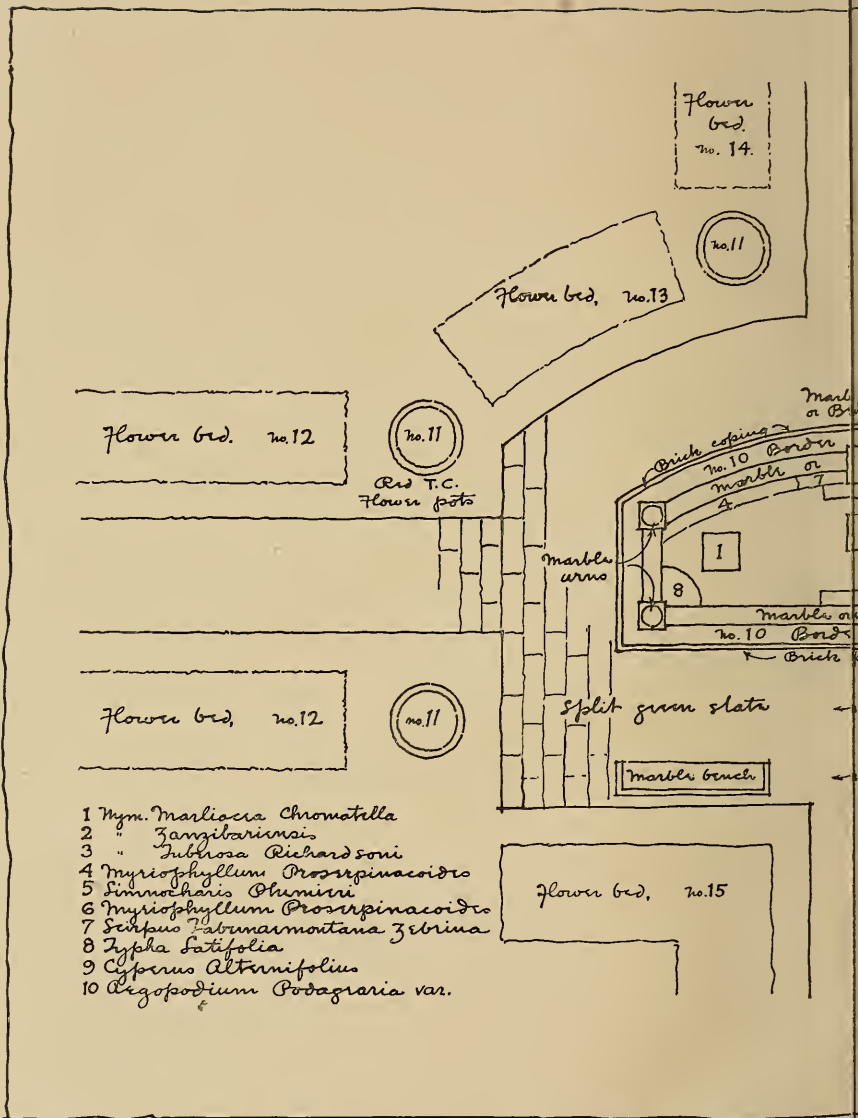 Flower
bed.
no. 14.
no. 11
Flower bed, no. 13
Flower bed. no. 12
no. 11
Red T.C.
Flower pots
Marbl
or Br
Brick coping
no. 10 Border
Marble or
7
4
Marble
urns
1
8
Marble or
no. 10 Borde
Brick
Flower bed, no. 12
no. 11
Split green slate
Marble bench
1 Nym. Marliacea Chromatella
2 " Zanzibariensis
3 " Tuberosa Richardsoni
4 Myriophyllum Proserpinacoides
5 Limnocharis Plumieri
6 Myriophyllum Proserpinacoides
7 Scirpus Tabernaemontana Zebrina
8 Typha Latifolia
9 Cyperus Alternifolius
10 Aegopodium Podagraria var.
Flower bed, no. 15